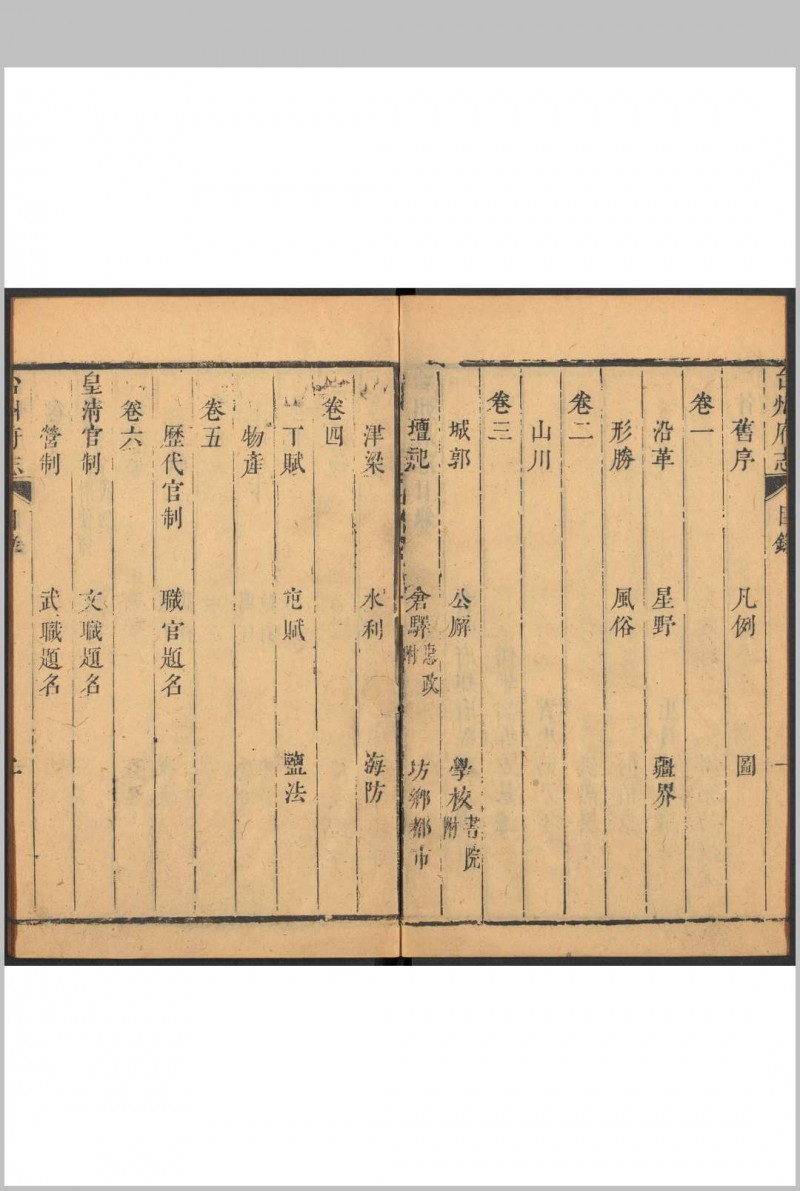 台州府志 目錄 一
舊序 凡例 圖
卷一
沿革 星野 疆界
形勝 風俗
卷二
山川
卷三
城郭 公廨 學校 書院附
壇祀 倉驛 惠政附 坊鄉都市
津梁 水利 海防
卷四
丁賦 屯賦 鹽法
物產
卷五
歷代官制 職官題名
卷六
皇清官制 文職題名
營制 武職題名
台州府志 目錄 二